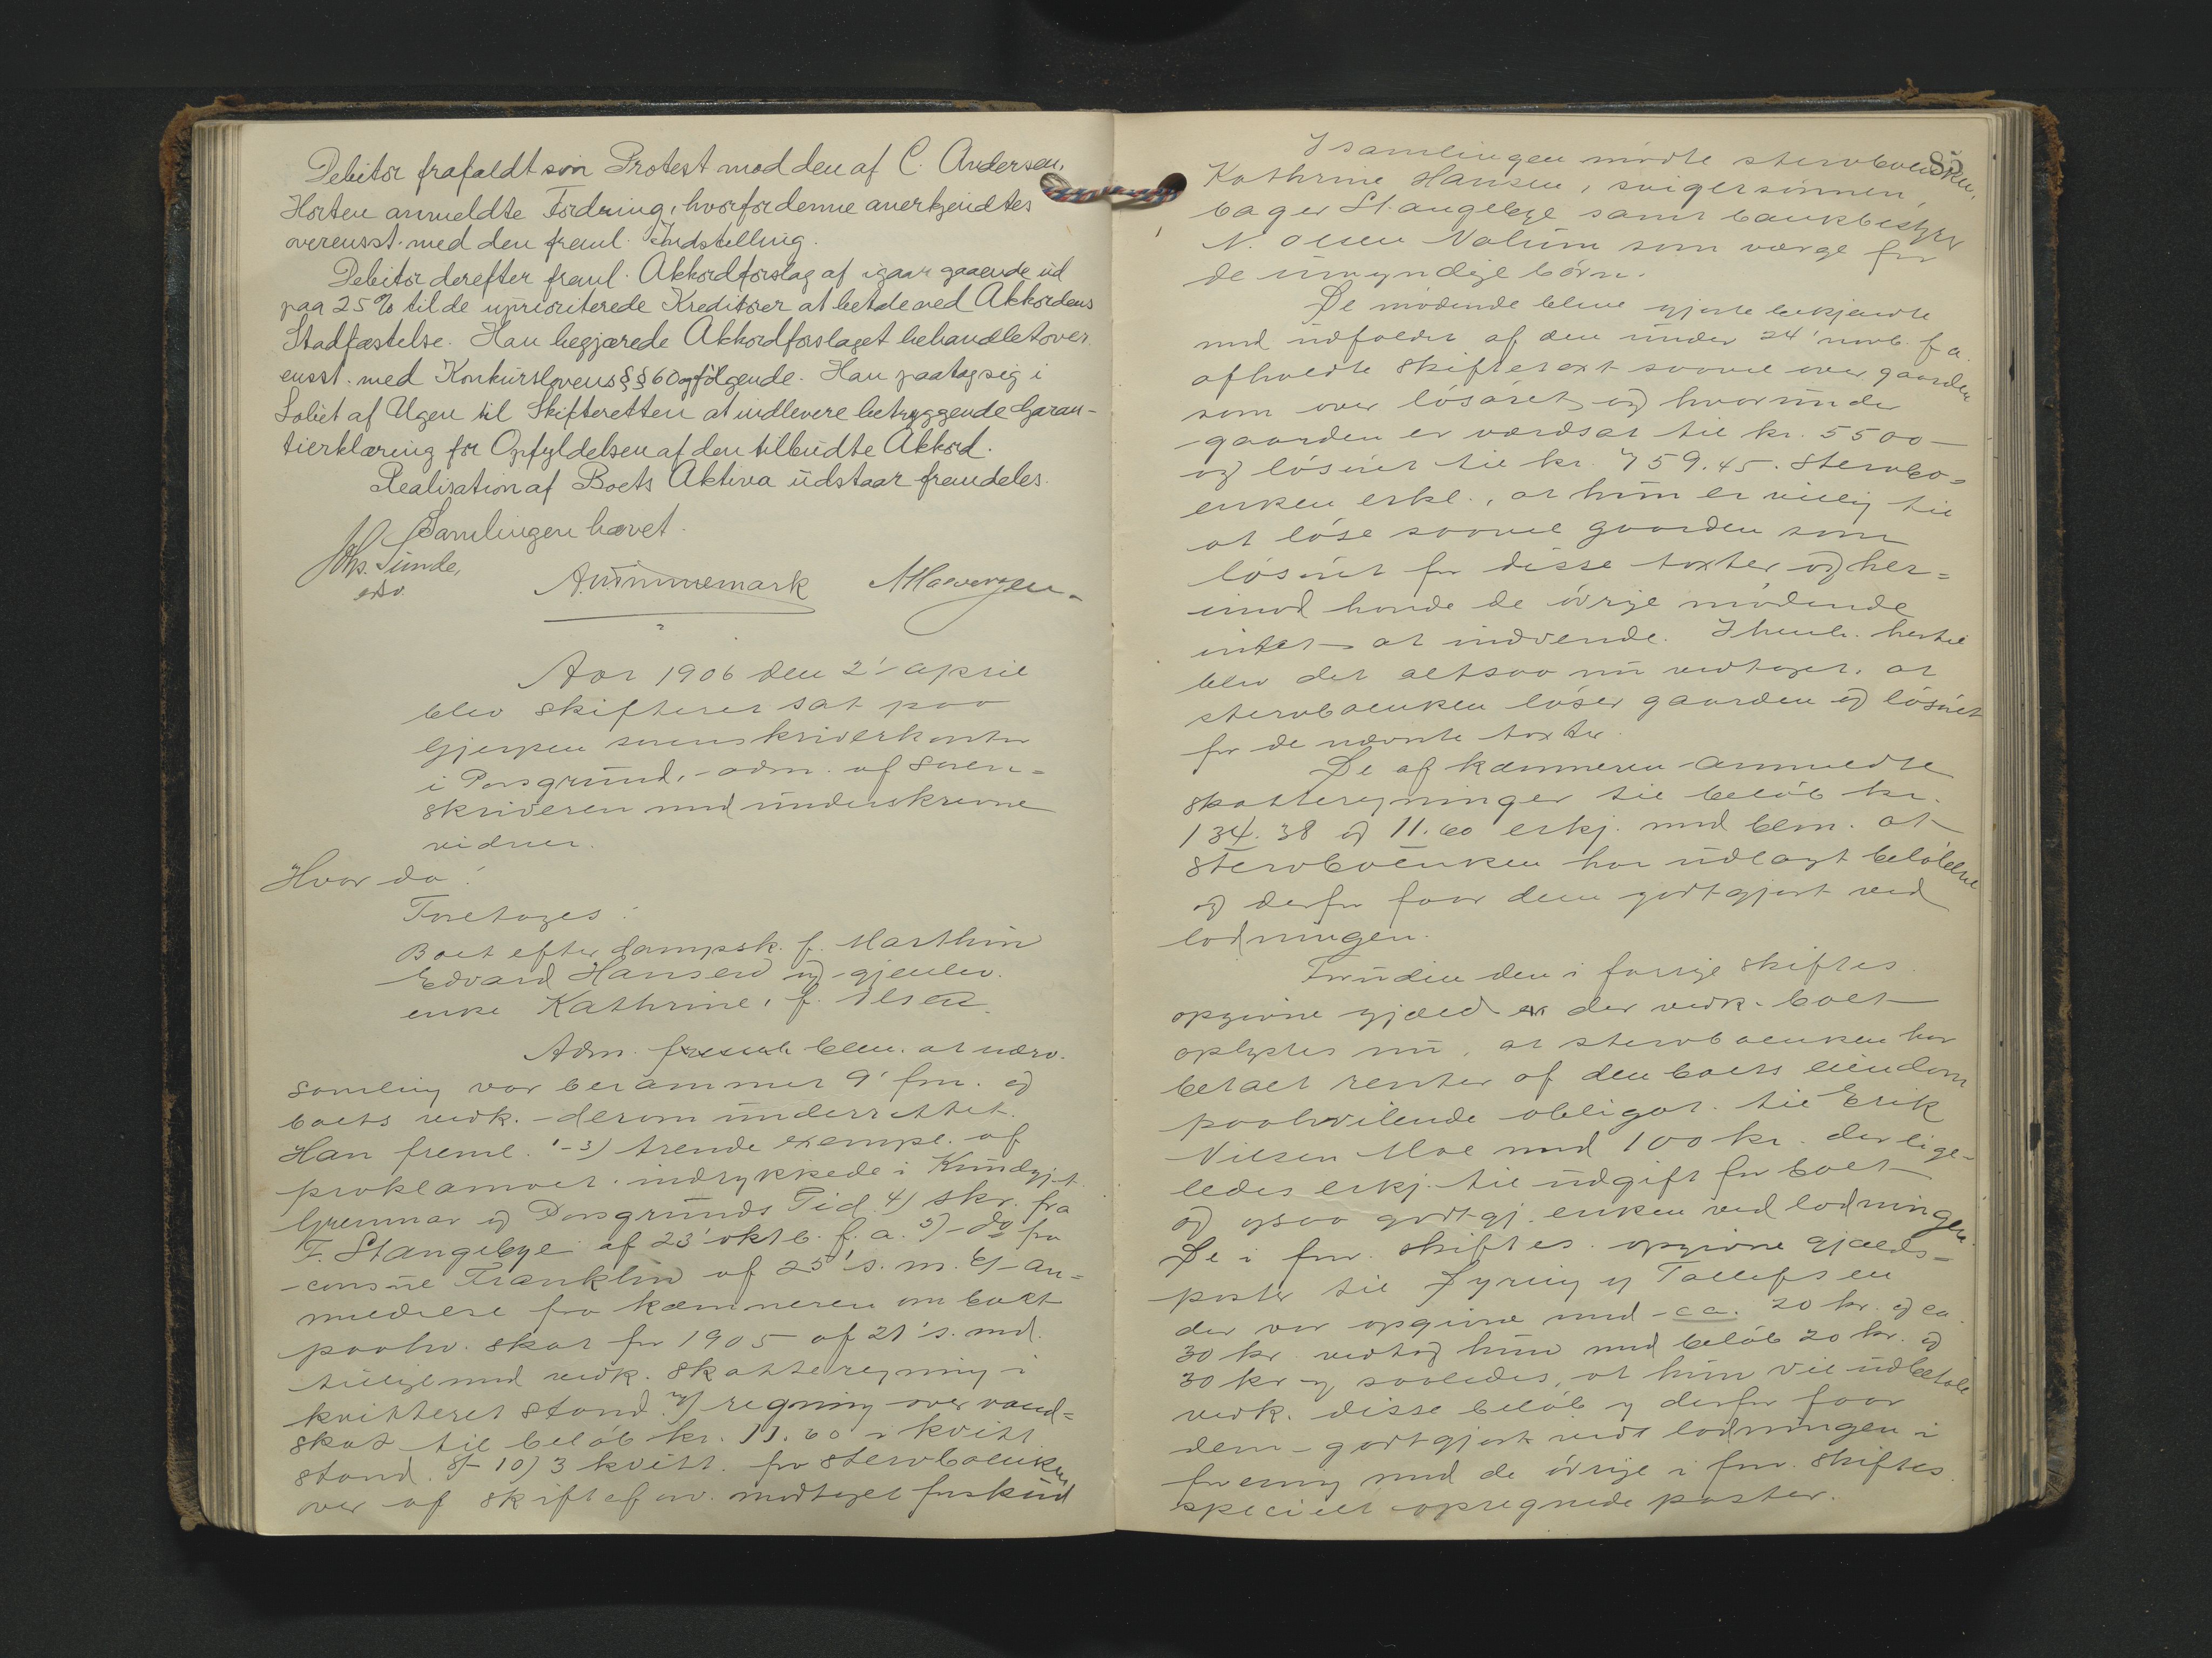 Debitor frafaldt sin Protest mod den af C. Andersen,
Horten anmeldte Fordring, hvorfor denne anerkjendtes
overensst. med den freml. Indstilling.
Debitor derefter freml. Akkordforslag af igaar gaaende ud
paa 25% til de uprioriterede Kreditorer at betale ved Akkordens
Stadfæstelse. Han begjærede Akkordforslaget behandlet over
ensst. med Konkurslovens §§ 60 og følgende. Han paatog sig i
Løbet af Ugen til Skifteretten at indlevere betryggende Garan-
tierklæring for Opfyldelsen af den tilbudte Akkord.
Realisation af Boets Aktiva udstaar fremdeles.
Samlingen hævet.
Joh. Sunde,
A. Wimmemark
Aar 1906 den 2' april
blev skifteret sat paa
Gjerpen sorenskriverkontor
i Porsgrund, - adm. af soren=
skriveren med underskrevne
vidner.
Hvor da:
Foretoges:
Boet efter dampsk. f. Marthin
Edvard Hansen og gjenlev.
enke Kathrine, f. Olsen.
Adm. bem. at nærv.
samling var berammet 9' fm. og
boets vedk. - derom underrettet.
Han freml. 1-3) trende exempl. af
proklamaet indrykkede i Kundgjt.
Grenmar og Porsgrunds Tid. 4) skr. fra
F. Stangebye af 23' oktb. f. a. 5) - do fra
- consul Franklin af 25' s. m. 6) - an=
meldelse fra kæmneren om boet
paahv. skat for 1905 af 21' s. md.
tilligemed vedk. skatteregning i
kvitteret stand. 7) regning over vand=
skat til beløb kr. 11.60 i kvitt.
stand. 8 - 10) 3 kvitt. fra stervboenken
over af skifteforv. modtaget forskud
85
I samlingen mødte stervboenken,
Kathrine Hansen, svigersønnen,
bager Stangebye samt bankbestyrer
N. Olsen Nalum som værge for
de umyndige børn.
De mødende bleve gjorte bekjendte
med udfaldet af den under 24' novb. f. a.
afholdte skiftetaxt saavel over gaarden
som over løsøret og hvorunder
gaarden er værdsat til kr. 5500 -
og løsøret til kr. 759.45. Stervbo=
enken erkl., at hun er villig til
at løse saavel gaarden som
løsøret for disse taxter og her=
imod havde de øvrige mødende
intet at indvende. I henh. hertil
blev det altsaa nu vedtaget, at
stervboenken løser gaarden og løsøret
for de nævnte taxter.
De af kæmneren anmeldte
skatteregninger til beløb kr.
134.38 og 11.60 erkj. med bem. at
stervboenken har udlagt beløbene
og derfor faar dem godtgjort ved
lodningen.
Foruden den i forrige skiftes.
opgivne gjæld er der vedk. boet
oplystes nu, at stervboenken har
betalt renter af den boets eiendom
paahvilende obligat. til Erik
Nilsen Moe med 100 kr. der lige-
ledes erkj. til udgift for boet
og ogsaa godtgj. enken ved lodningen
De i forr. skiftes. opgivne gjælds=
poster til Fyring og Tollefsen
der var opgivne med ca. 20 kr. og ca.
30 kr. vedtog hun med beløb 20 kr. og
30 kr og saaledes, at hun vil udbetale
vedk. disse beløb og derfor faar
dem godtgjort ved lodningen i
forening med de øvrige i forr. skiftes.
specielt opregnede poster.